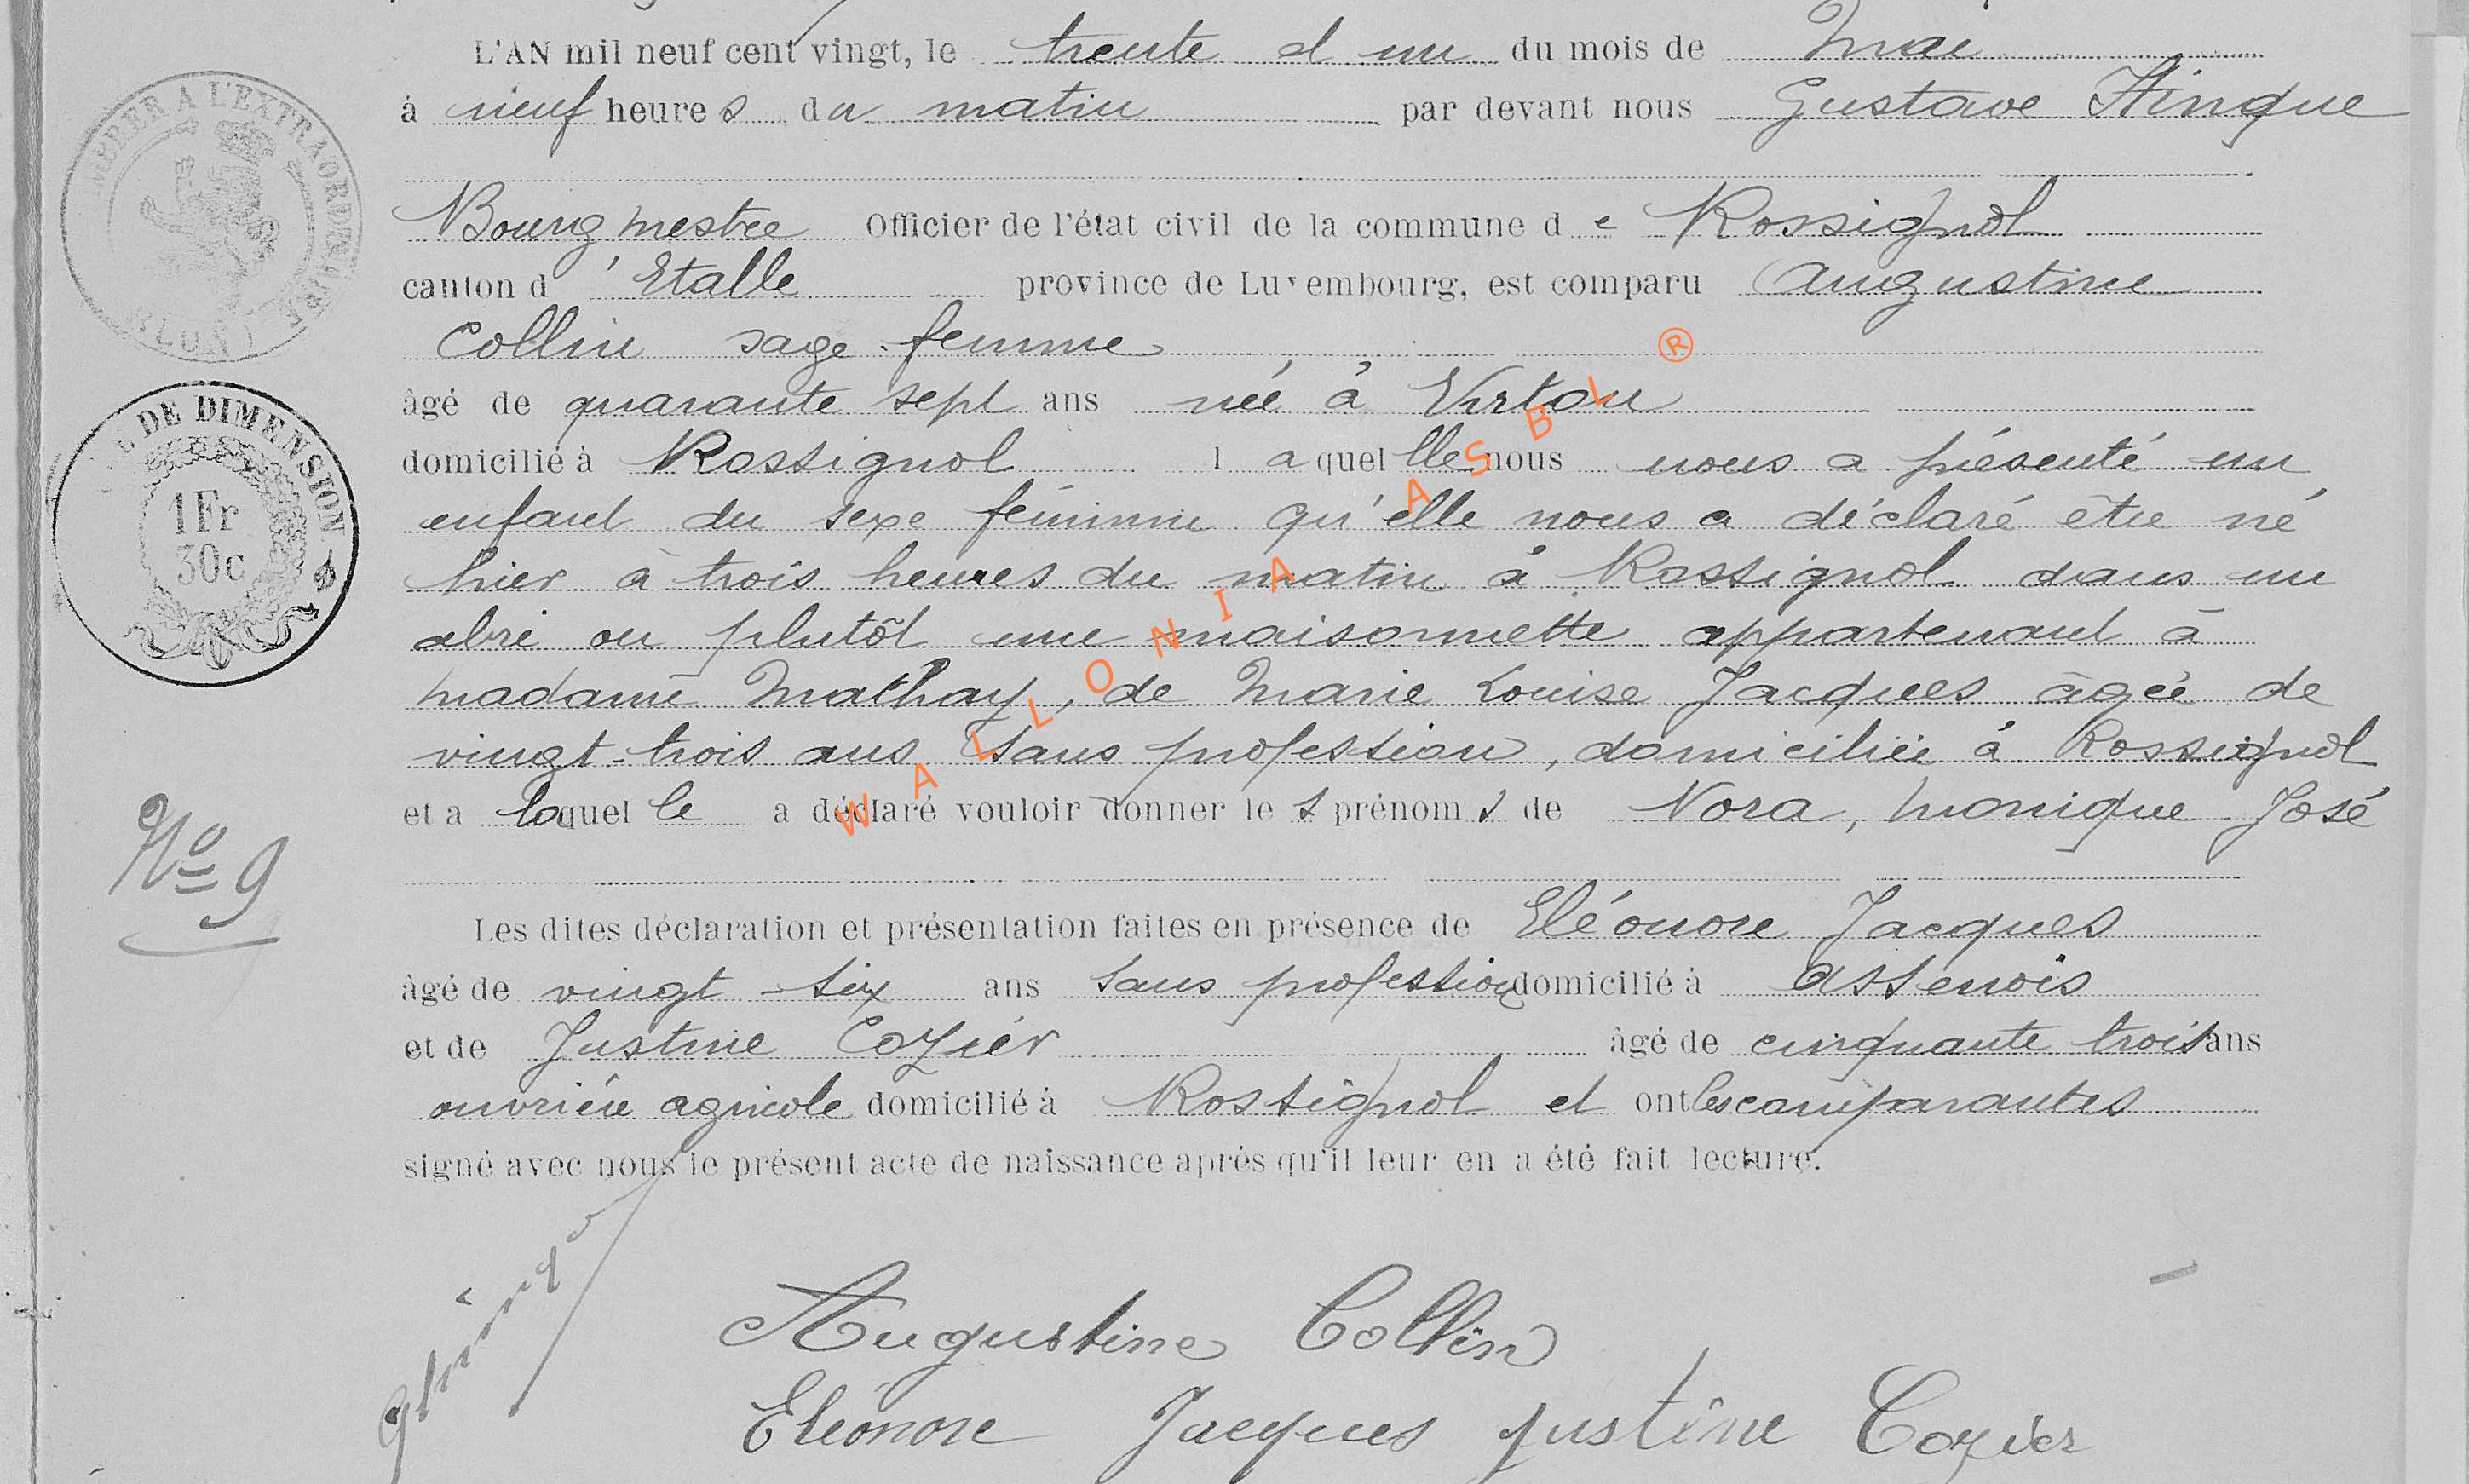 L'AN mil neuf cent vingt, le trente et un du mois de Mai
à neuf heures du matin par devant nous Gustave Hinque
Bourgmestre Officier de l'état civil de la commune de Rossignol
canton d'Etalle province de Luxembourg, est comparu Augustine
Collin sage-femme
âgé de quarante sept ans née à Virton
domicilié à Rossignol laquelle nous nous a présenté un
enfant du sexe féminin qu'elle nous a déclaré être né
hier à trois heures du matin à Rossignol dans un
abri ou plutôt une maisonnette appartenant à
madame Mathay, de Marie Louise Jacques âgée de
vingt-trois ans sans profession, domiciliée à Rossignol
et a laquelle a déclaré vouloir donner les prénoms de Nora, Monique José
Les dites déclaration et présentation faites en présence de Eléonore Jacques
âgé de vingt-six ans sans profession domicilié à Assenois
et de Justine Cozier âgé de cinquante trois ans
ouvrière agricole domicilié à Rossignol et ont les comparantes
signé avec nous le présent acte de naissance après qu'il leur en a été fait lecture.
IMPRER A L'EXTRAORDINAIRE
ARLON
DE DIMENSION
1Fr
30c
No 9
WALLONIA ASBL ®
GHinque
Augustine Collin
Eléonore Jacques Justine Cozier